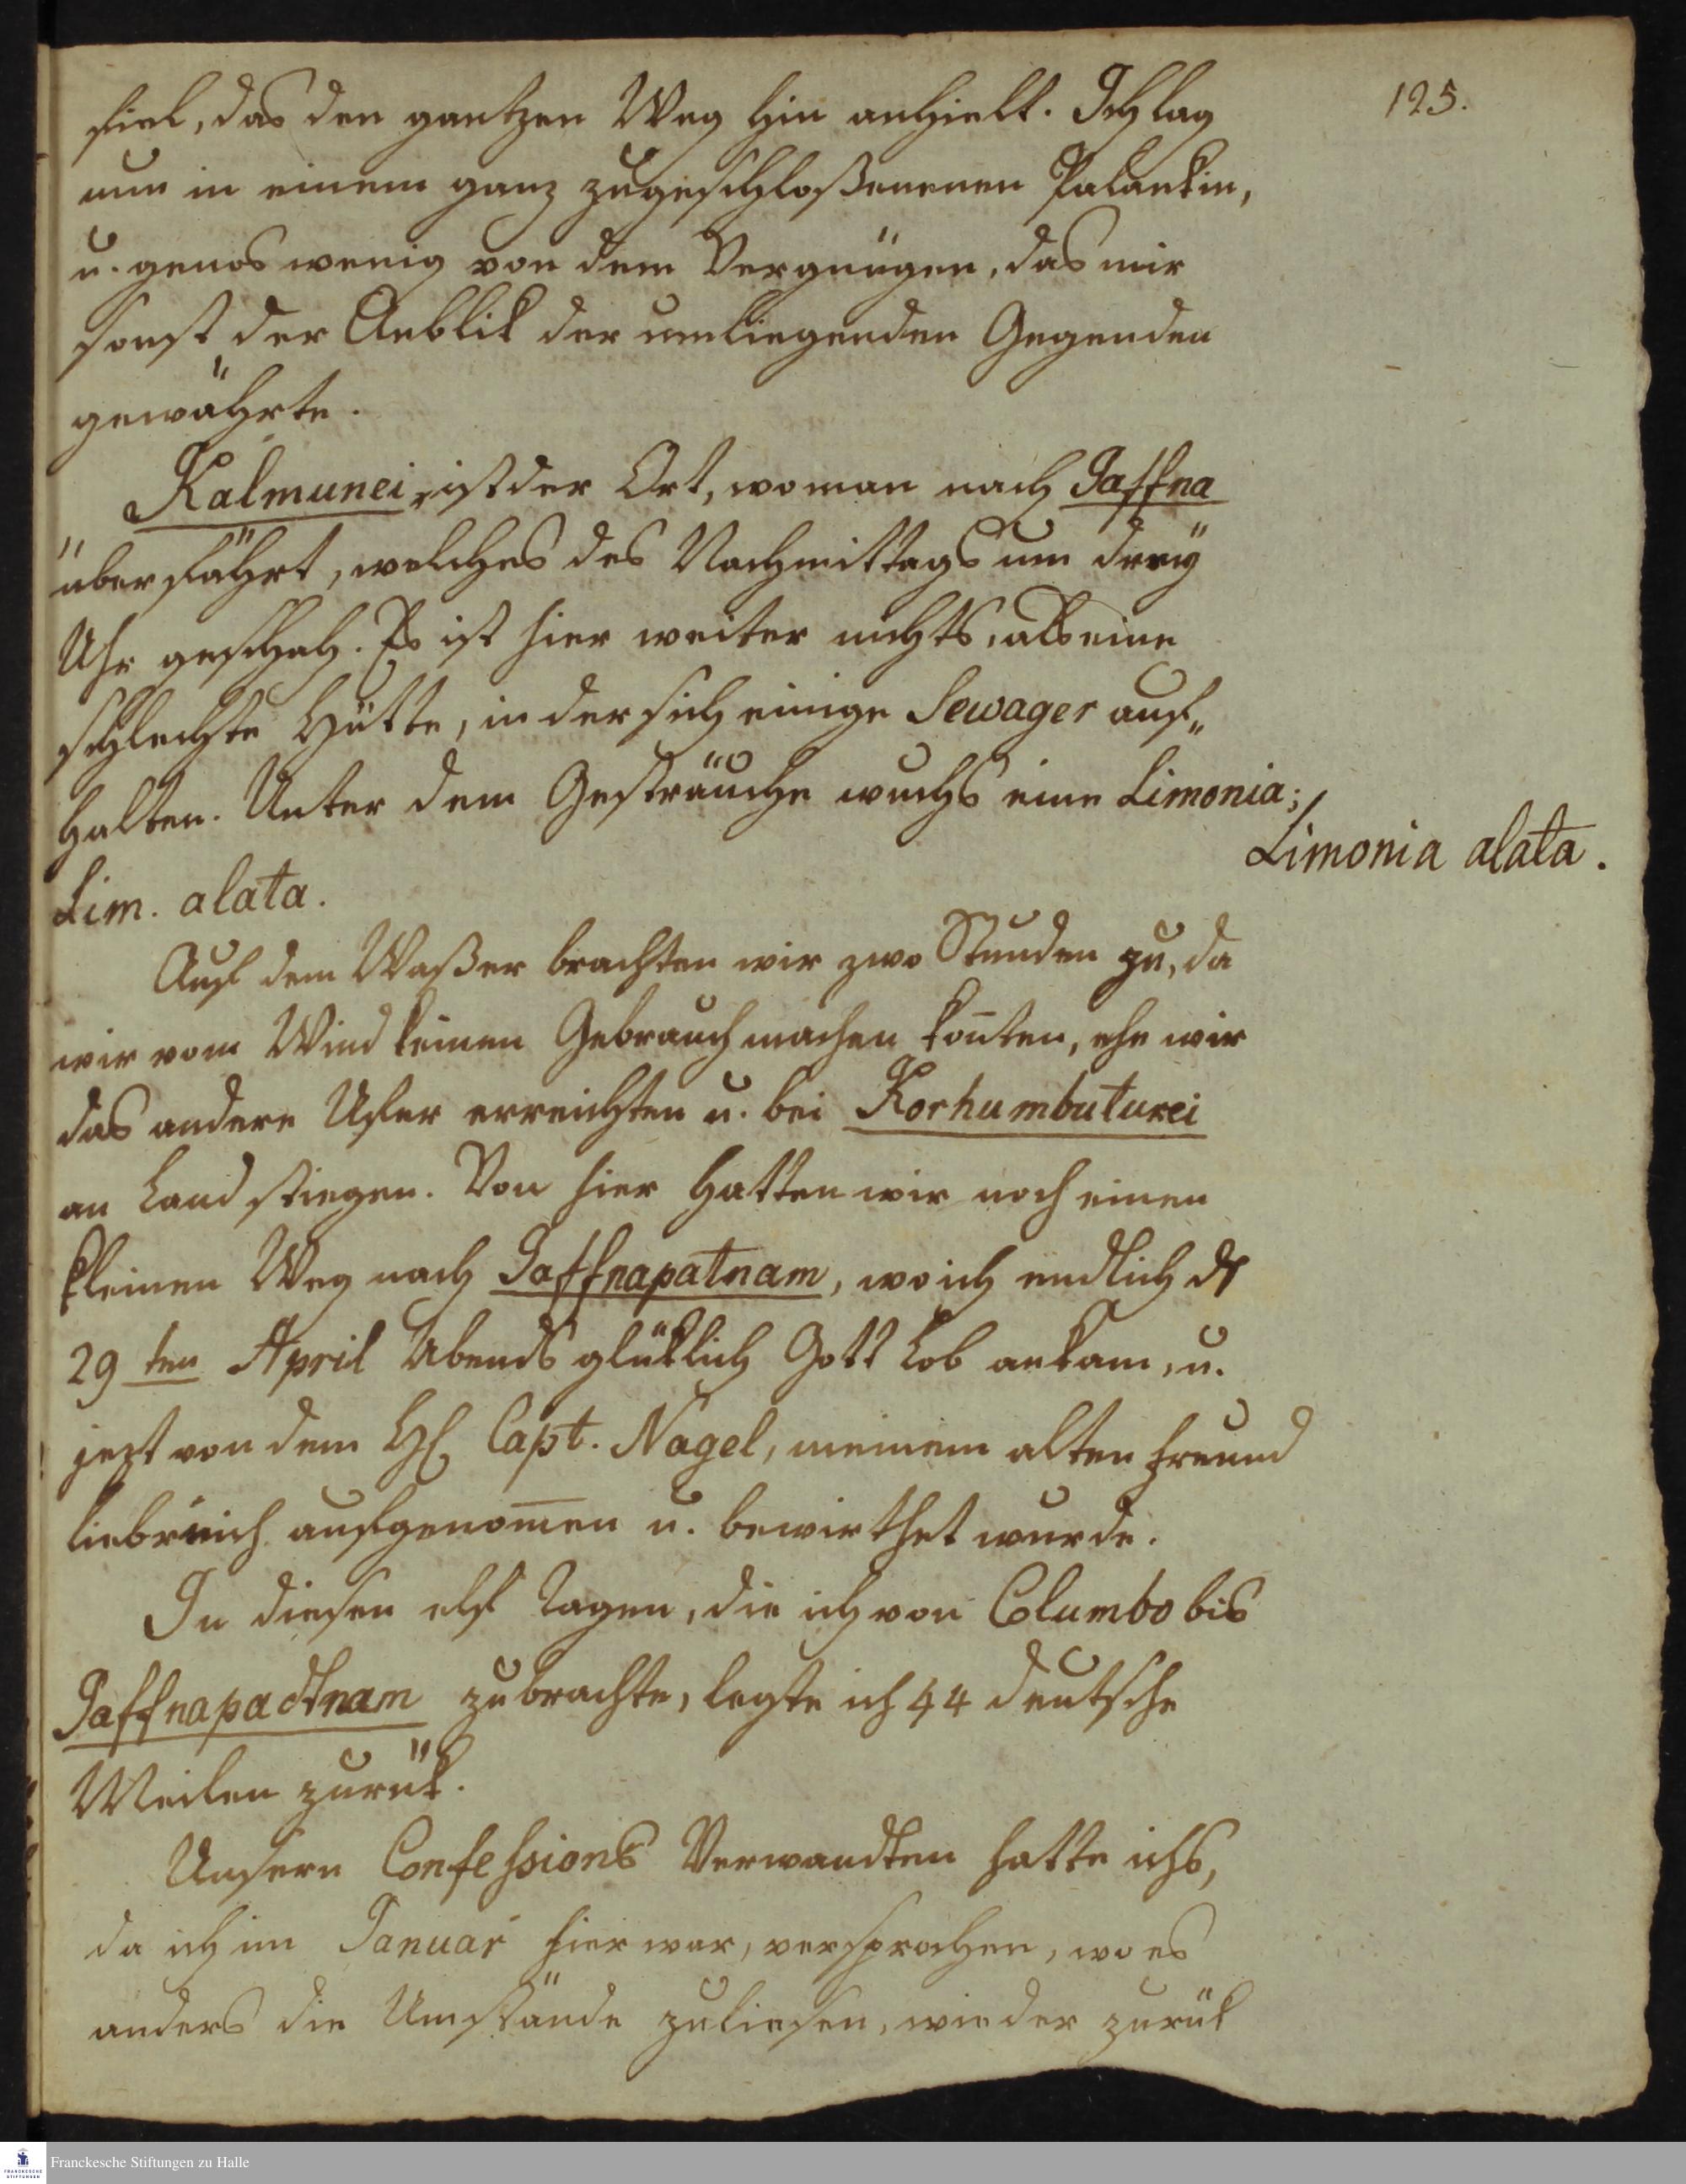 125.
fiel, das den gantzen Weg hin anhielt. Ich lag
nun in einem ganz zugeschloßenenen Palankin,
u. genos wenig von dem Vergnügen, das mir
sonst der Anblik der umliegenden Gegenden
gewährte.
Kalmunei ist der Ort, wo man nach Jaffna
überfährt, welches des Nachmittags um dreÿ
Uhr geschah. Es ist hier weiter nichts, als eine
schlechte Hütte, in der sich einige Sewager auf„
halten. Unter dem Gesträuche wuchs eine Limonia;
Limonia alata.
Lim. alata.
Auf dem Waßer brachten wir zwo Stunden zu, da
wir vom Wind keinen Gebrauch machen kon̄ten, ehe wir
das andere Ufer erreichten u. bei Korhumbuturei
an Land stiegen. Von hier hatten wir noch einen
kleinen Weg nach Jaffnapatnam, wo ich endlich d
29ten April Abends glüklich Gott Lob ankam, u.
jezt von dem H Capt. Nagel, meinem alten Freund
liebreich aufgenom̄en u. bewirthet wurde.
In diesen elf Tagen, die ich von Columbo bis
Jaffnapattnam zubrachte, legte ich 44 deutsche
Meilen zurük.
Unsern Confessions Verwandten hatte ichs,
da ich im Januar hier war, versprochen, wo es
anders die Umstände zuliesen, wieder zurük
Franckesche Stiftungen zu Halle